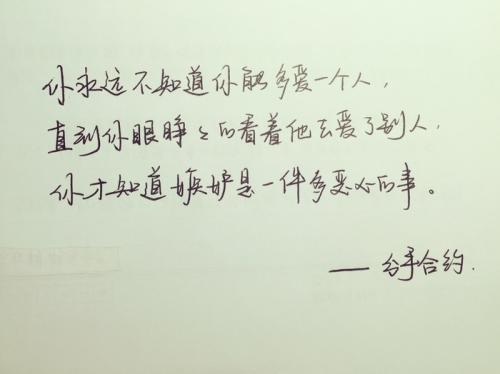 你永远不知道你能多爱一个人，
直到你眼睁々的看着他去爱了别人，
你才知道嫉妒是一件多恶心的事。
——分手合约.